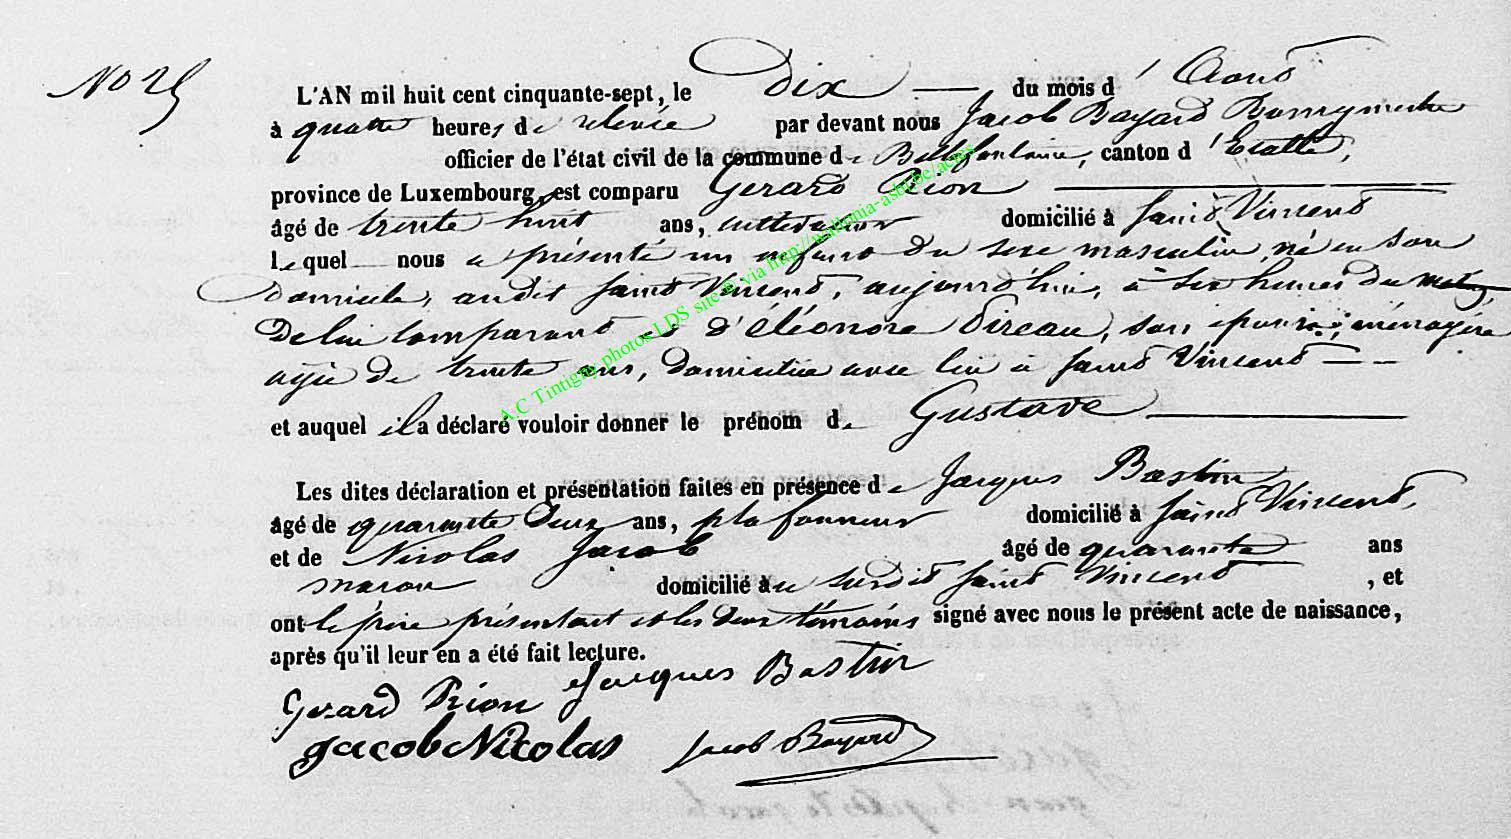 No 25
L'AN mil huit cent cinquante-sept, le Dix du mois d'Août
à quatre heures de relevée par devant nous Jacob Bayard Bourgmestre
officier de l'état civil de la commune de Bellefontaine, canton d'Etalle,
province de Luxembourg, est comparu Gérard Rion
âgé de trente huit ans, cultivateur domicilié à Saint Vincent
lequel nous a présenté un enfant du sexe masculin, né en son
domicile, audit Saint Vincent, aujourd'hui, à six heures du matin,
De lui comparant et d'éléonore Pireau, son épouse, ménagère
agée de trente ans, domiciliée avec lui à Saint Vincent
et auquel il a déclaré vouloir donner le prénom de Gustave
Les dites déclaration et présentation faites en présence de Jacques Bastin
âgé de quarante deux ans, plafonneur domicilié à Saint Vincent,
et de Nicolas Jacob âgé de quarante ans
maçon domicilié au susdit Saint Vincent, et
ont le père présentant et les deux témoins signé avec nous le présent acte de naissance,
après qu'il leur en a été fait lecture.
Gerard Rion Jacques Bastin
Jacob Nicolas Jacob Bayard
A.C Tintigny photos LDS site © via http://wallonia-asbl.be/actes